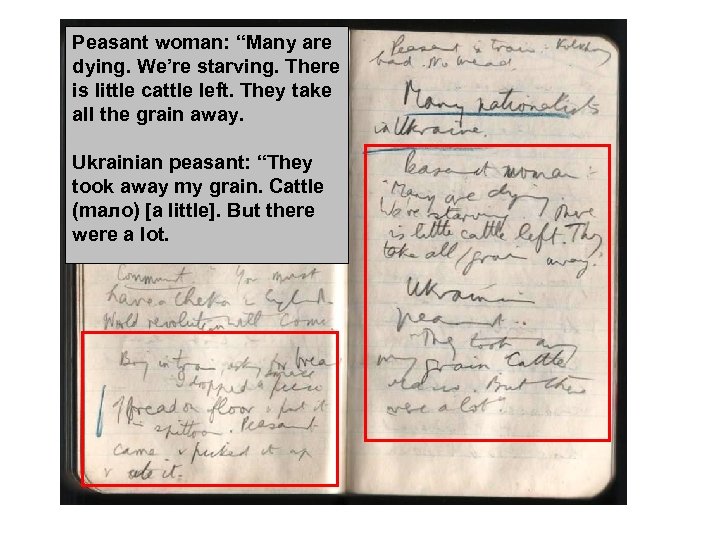 Peasant woman: “Many are
dying. We’re starving. There
is little cattle left. They take
all the grain away.
Ukrainian peasant: “They
took away my grain. Cattle
(mало) [a little]. But there
were a lot.
Communist : "You must
have a Cheka in England
World revolution will come.
Boy in train, asking for bread
dropped a piece
of bread on floor & put it
in spittoon. Peasant
came & picked it up
& ate it.
Peasant in train :
bad. No bread.
Many nationalists
in Ukraine.
Peasant woman :-
"Many are dying.
We're starving There
is little cattle left. They
take all grain away."
Ukrainian
peasant..
"They took away
my grain Cattle
. But there
were a lot".